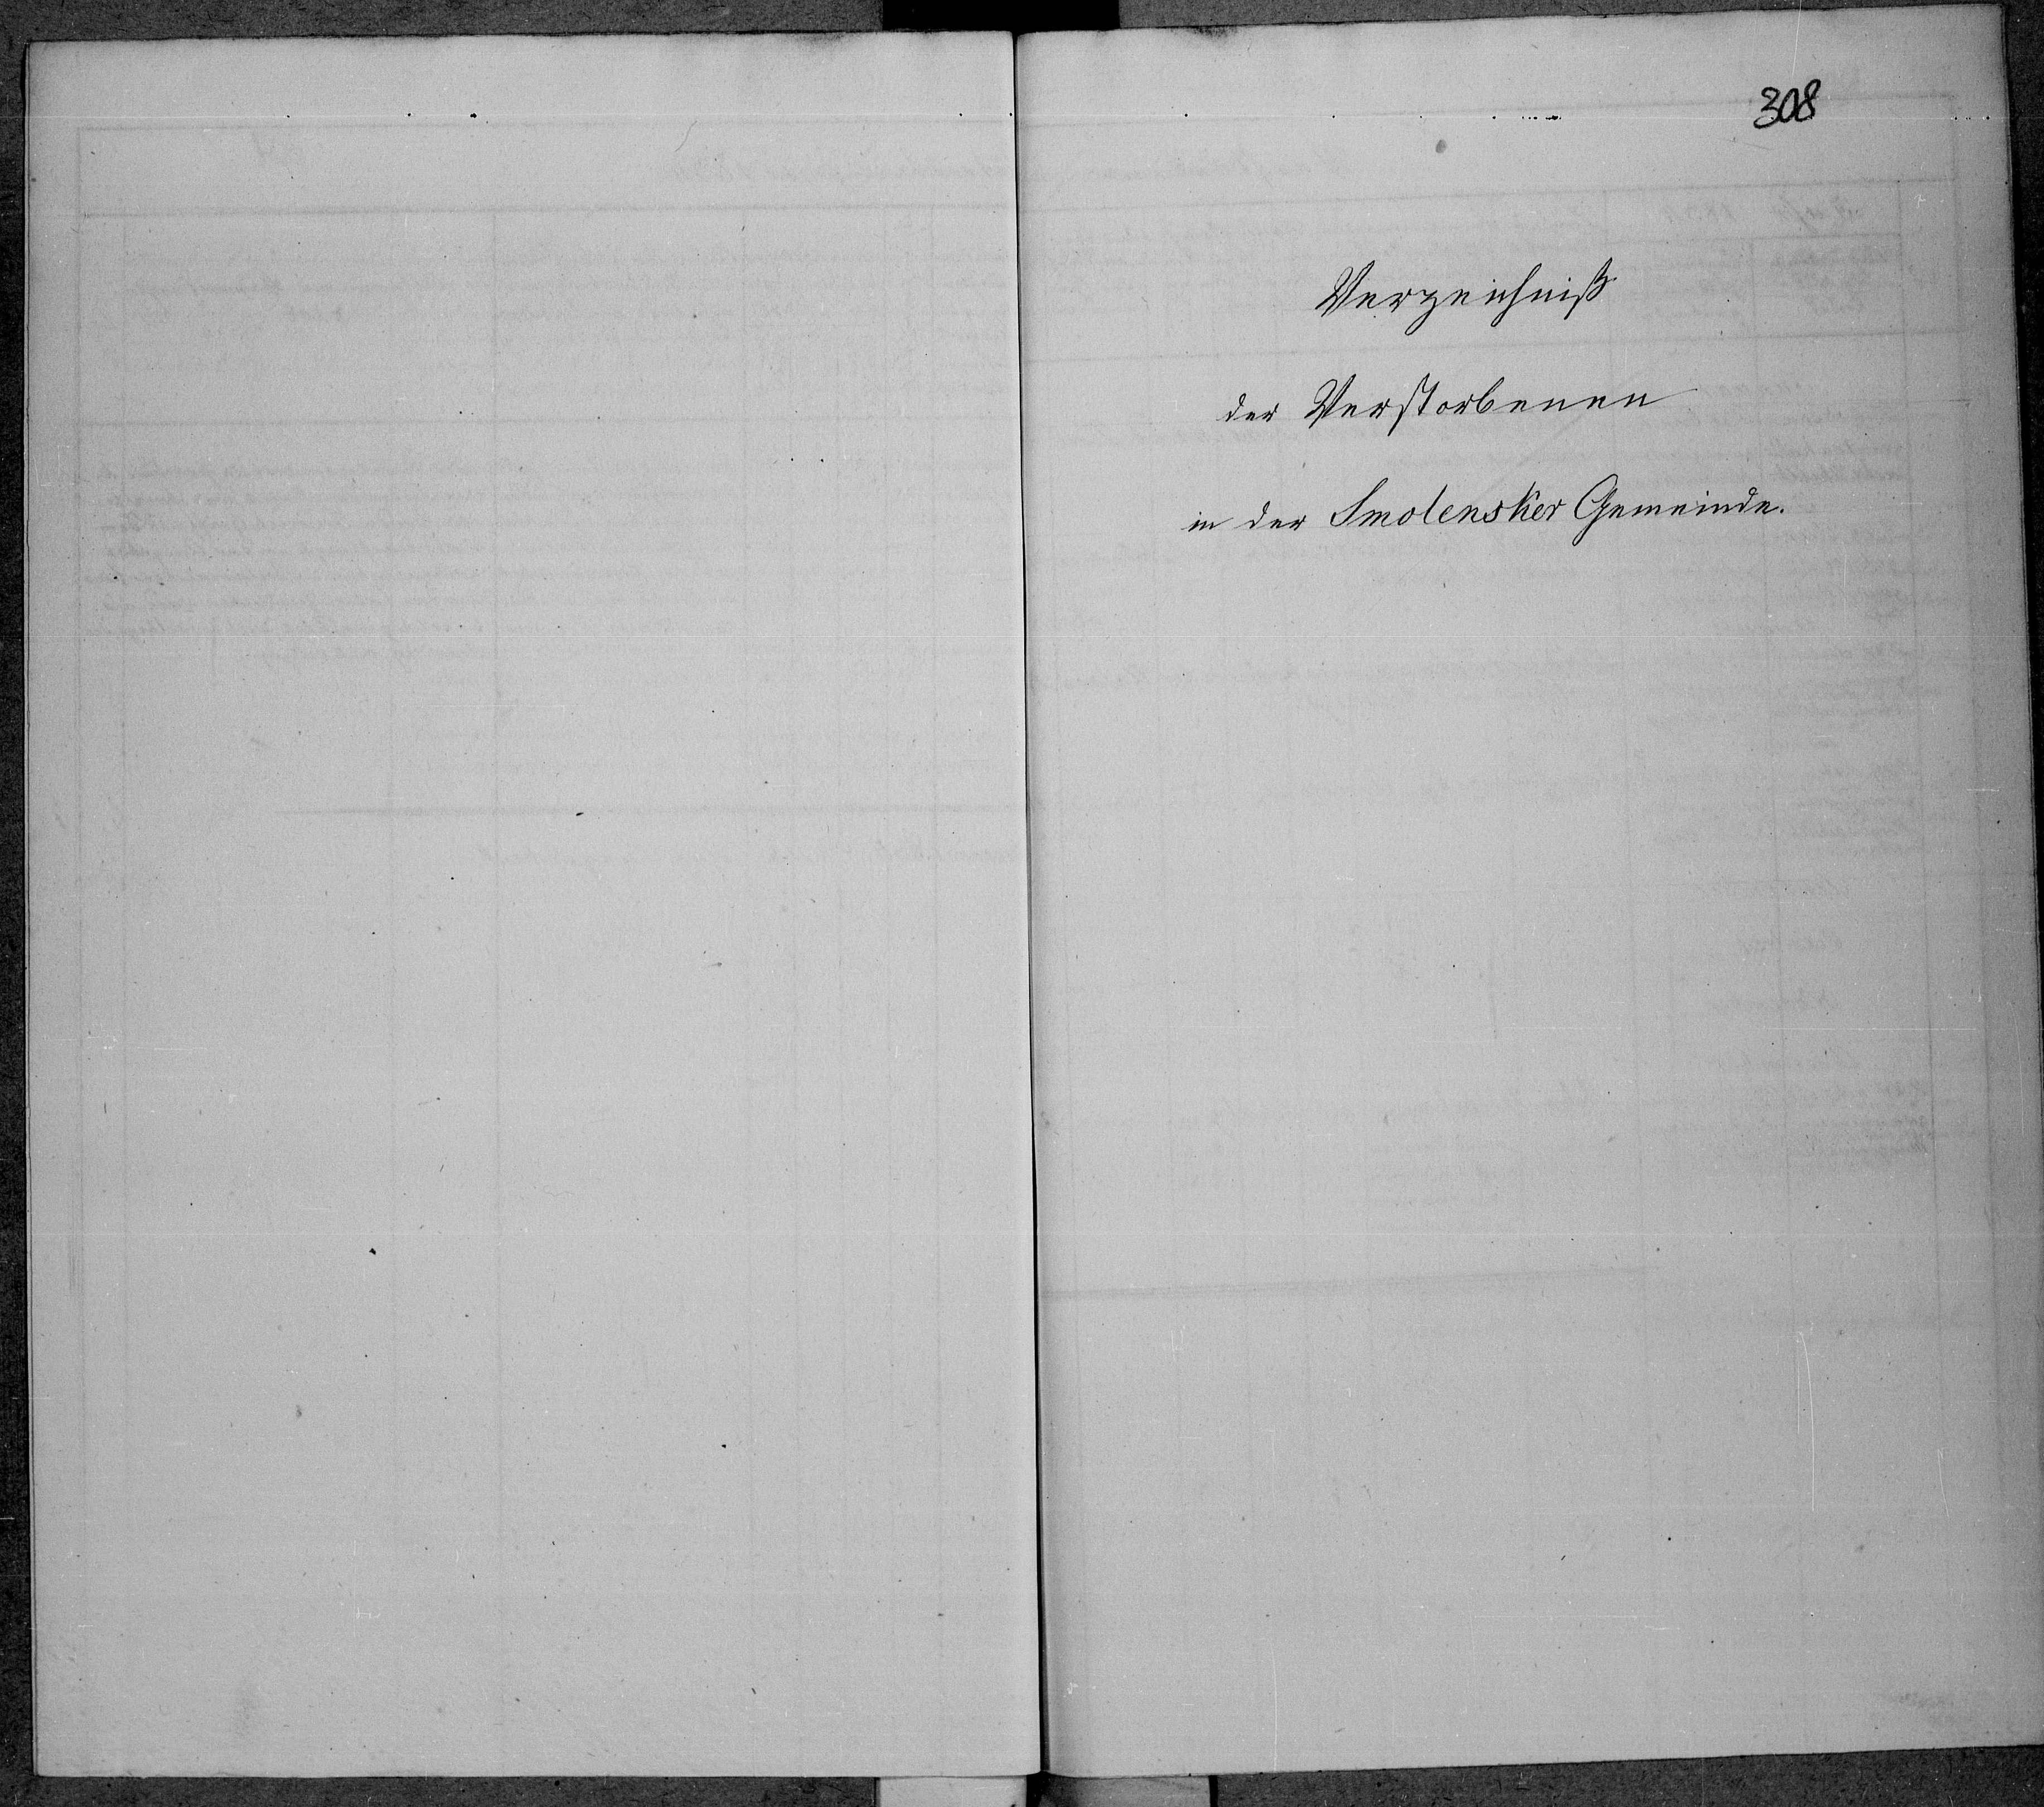 308
Verzeichniß
der Verstorbenen
in der Smolensker Gemeinde.